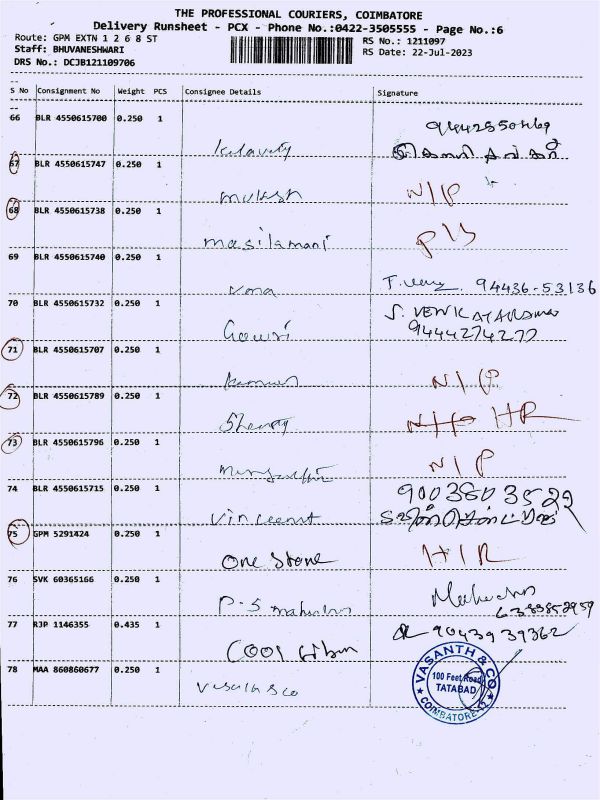 THE PROFESSIONAL COURIERS, COIMBATORE
Delivery Runsheet - PCX - Phone No.:0422-3505555 - Page No.:6
Route: GPM EXTN 1 2 6 8 ST
RS No.: 1211097
Staff: BHUVANESHWARI
RS Date: 22-Jul-2023
DRS No.: DCJB121109706
S No Consignment No Weight PCS Consignee Details Signature
66 BLR 4550615700 0.250 1
67 BLR 4550615747 0.250 1
mukesh N/P
68 BLR 4550615738 0.250 1
masilamani
69 BLR 4550615740 0.250 1
uma 94436-53136
70 BLR 4550615732 0.250 1
S. VENKATARAMAN
Gowri 9444274277
71 BLR 4550615707 0.250 1
N/P
72 BLR 4550615789 0.250 1
N/P HR
73 BLR 4550615796 0.250 1
N/P
74 BLR 4550615715 0.250 1
9003803529
Vincent
75 GPM 5291424 0.250 1
One Stone
76 SVK 60365166 0.250 1
P-S
77 RJP 1146355 0.435 1
9043939362
Cool
78 MAA 860860677 0.250 1
VASANTH & CO
100 Feet Road
TATABAD
COIMBATORE-12